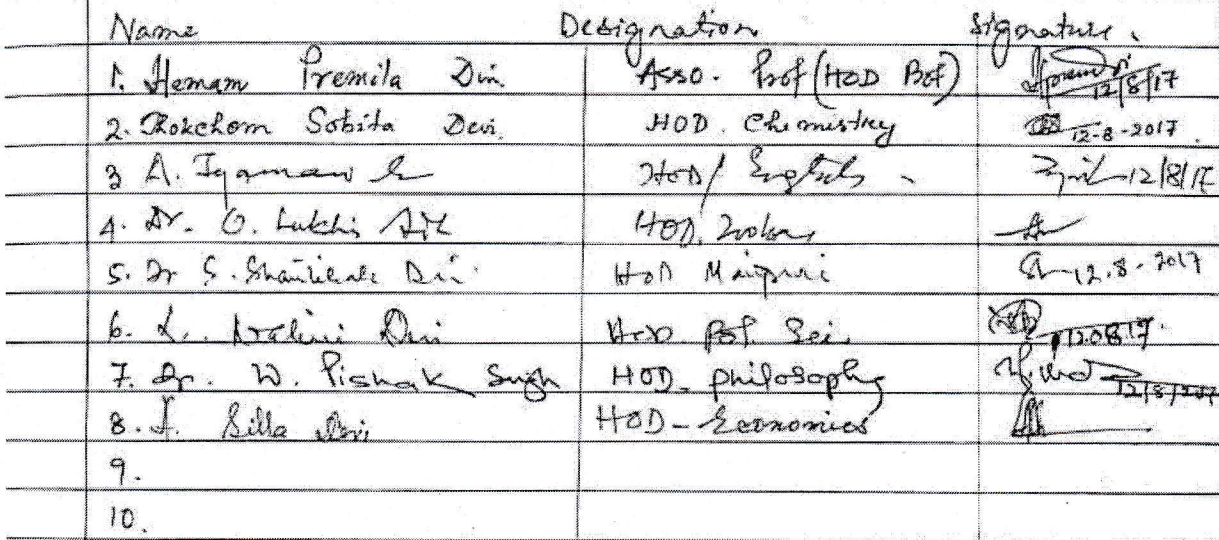 Name Designation Signature.
1. Hemam Premila Devi Asso. Prof (HOD Bot) 12/8/17
2. Thokchom Sobita Devi. HOD. Chemistry 12-8-2017.
3 A. HOD/ English 12/8/17
4. Dr. O. Lukhi HOD. Zoology
5. Dr S. Devi HOD Manipuri 12.8.2017
6. L. Nalini Devi HOD. Pol. Sci. 12.08.17.
7. Dr. W. Pishak Singh HOD- philosophy 12/8/2017
8. Silla Devi HOD- Economics
9.
10.